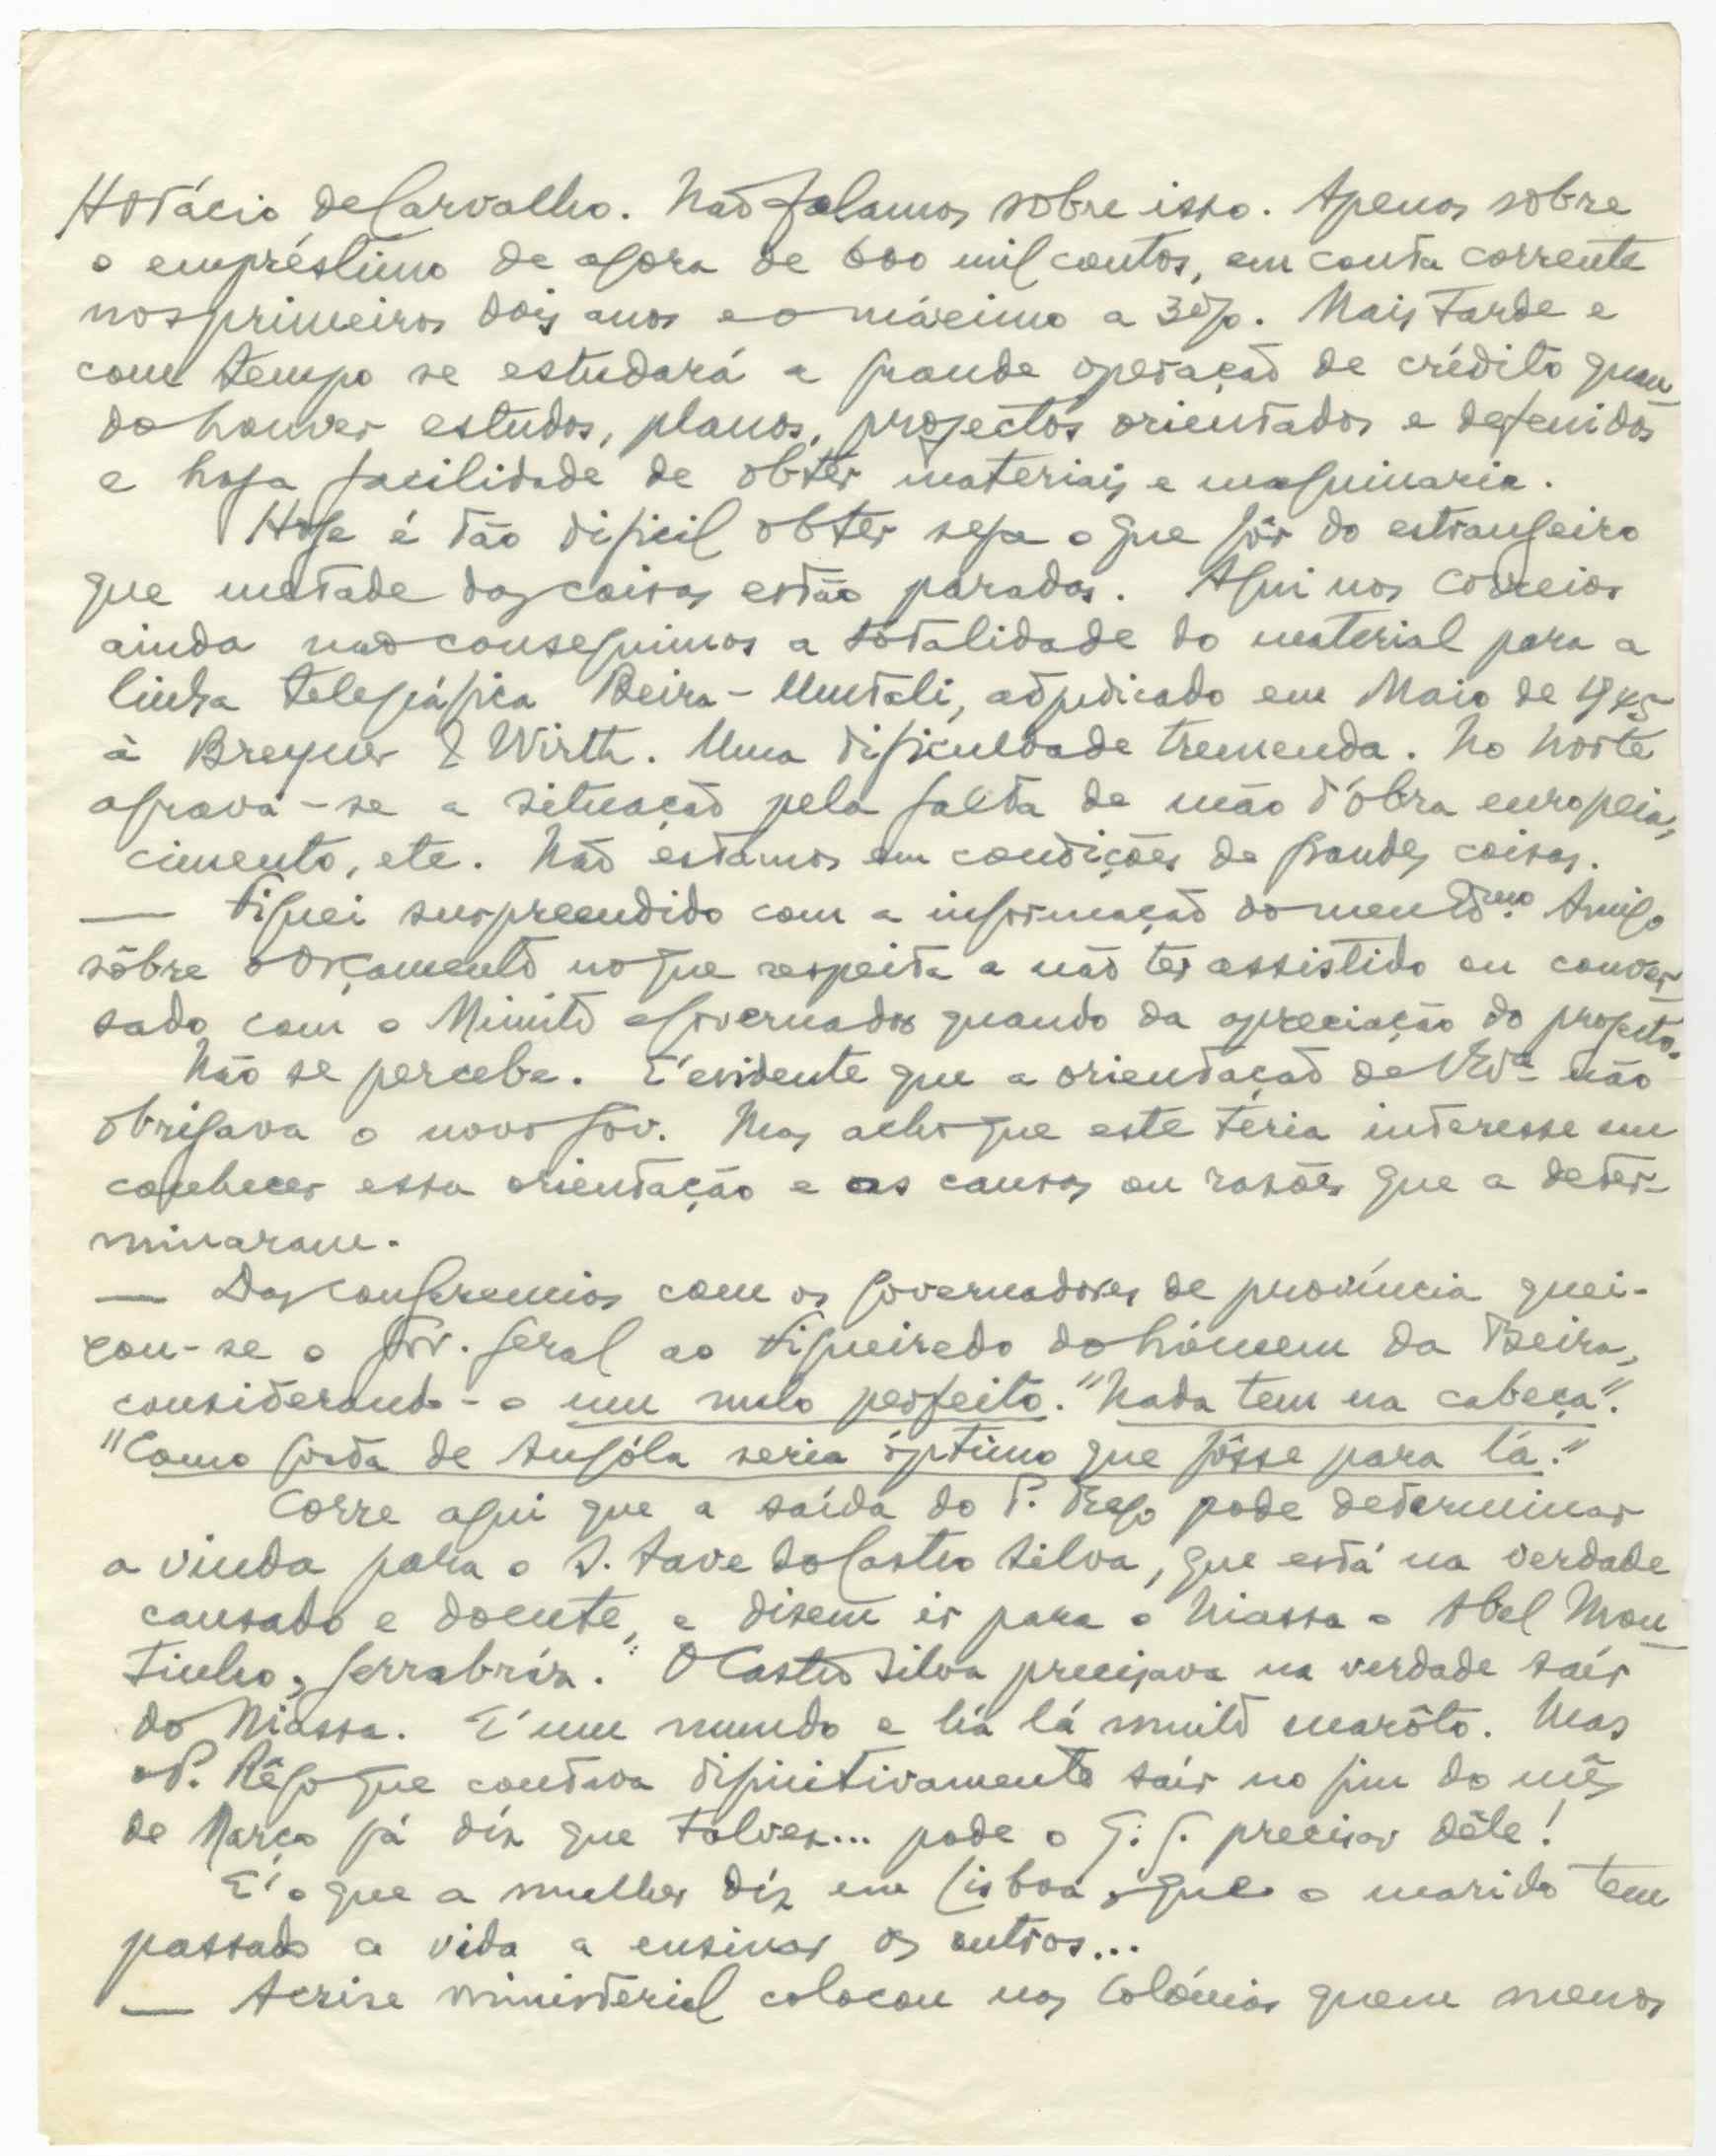 Horácio de Carvalho. Não falamos sobre isso. Apenas sobre
o empréstimo de agora de 600 mil contos, em conta corrente
nos primeiros dois anos e o máximo a 3%. Mais tarde e
com tempo se estudará a grande operação de crédito quan-
do houver estudos, planos, projectos orientados e defenidos
e haja facilidade de obter materiais e maquinaria.
Hoje é tão dificil obter seja o que fôr do estrangeiro
que metade das coisas estão paradas. Aqui nos Correios
ainda não conseguimos a totalidade do material para a
linha telegráfica Beira - Umtali, adjudicado em Maio de 945
à Breyner & Wirth. Uma dificuldade tremenda. No Norte
agrava-se a situação pela falta de mão d'óbra europeia,
cimento, etc. Não estamos em condições de grandes coisas.
— Fiquei surpreendido com a informação do meu Amigo
sôbre o Orçamento no que respeita a não ter assistido ou conver-
sado com o Ministo e Governador quando da apreciação do projecto.
Não se percebe. É evidente que a orientação de V. Exª não
obrigava o novo Gov. Mas acho que este teria interesse em
conhecer essa orientação e as causas ou rasões que a deter-
minaram.
— Das conferencias com os Governadores de provincia quei-
xou-se o Gov. Geral ao Figueiredo do hómem da Beira,
considerando-o um nulo perfeito. "Nada tem na cabeça".
"Como gosta de Angóla seria óptimo que fôsse para lá."
Corre aqui que a saída do P. Rego pode determinar
a vinda para o S. Save do Castro Silva, que está na verdade
cansado e doente, e disem ir para o Niassa o Abel Mou-
tinho, ferrabráz. O Castro Silva precisava na verdade saír
do Niassa. É um mundo e há lá muito marôto. Mas
o P. Rêgo que contava difinitivamente saír no fim do mês
de Março já diz que talvez... pode o G. G. precisar dêle!
É o que a mulher diz em Lisboa, que o marido tem
passado a vida a ensinar os outros...
— A crise ministerial colocou nas Colónias quem menos